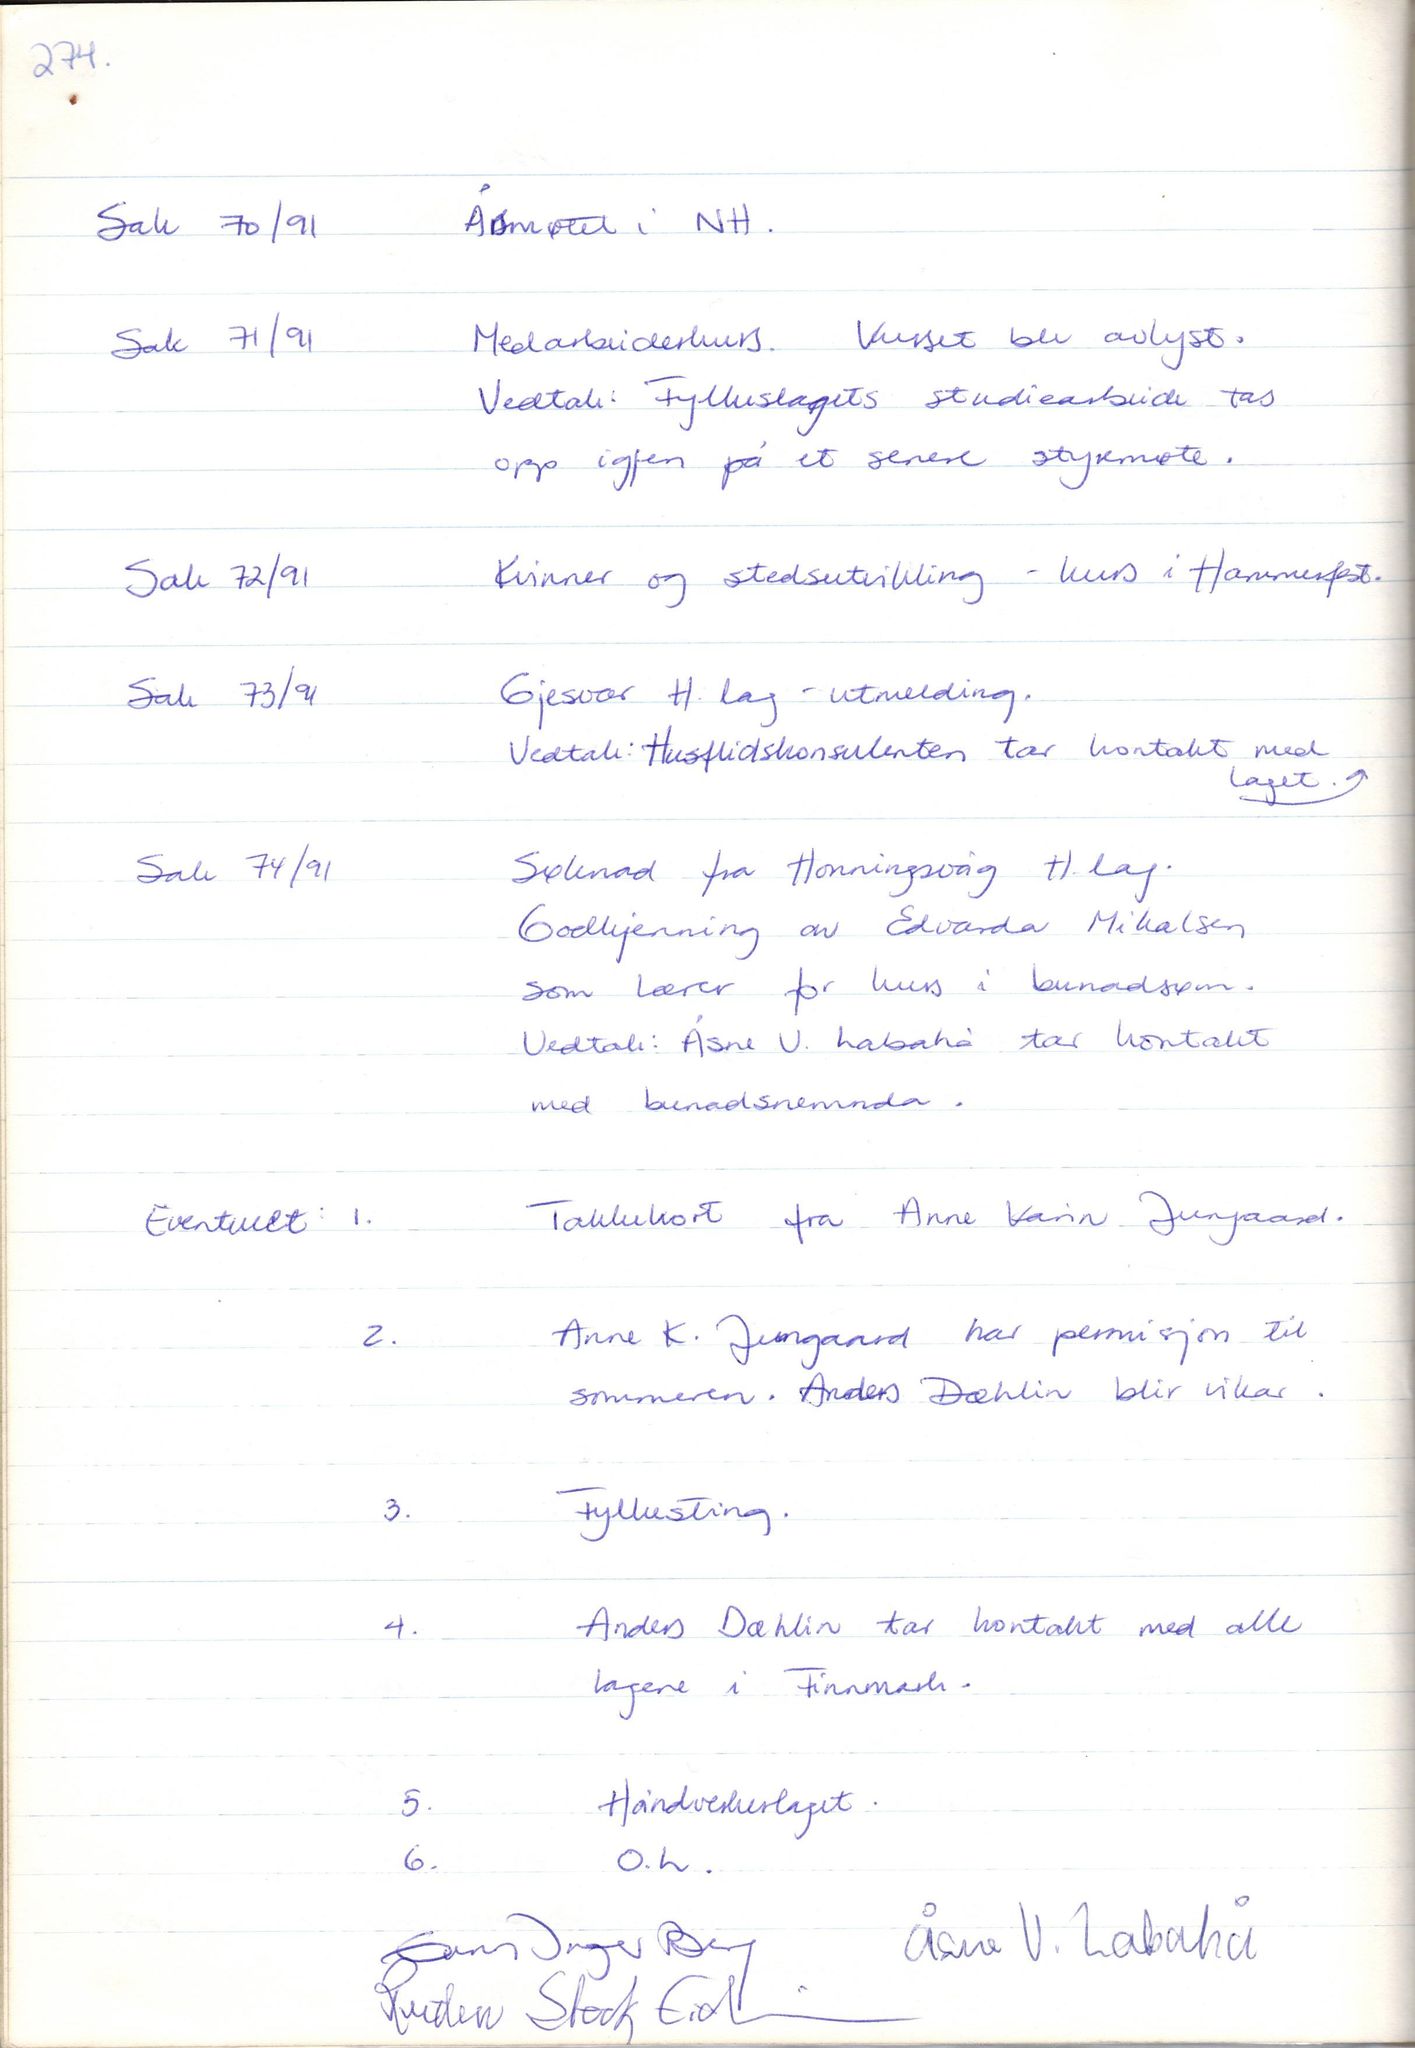 274.
Sak 70/91 Årsmøtet i NH.
Sak 71/91 Medarbeiderkurs. Kurset ble avlyst.
Vedtak: Fylkeslagets studiearbeide tas
opp igjen på et senere styremøte.
Sak 72/91 Kvinner og stedsutvikling - kurs i Hammerfest.
Sak 73/91 Gjesvær H. lag - utmelding.
Vedtak: Husflidskonsulenten tar kontakt med
laget.
Sak 74/91 Søknad fra Honningsvåg H. lag.
Godkjenning av Edvarda Mikalsen
som lærer for kurs i bunadsøm.
Vedtak: Åsne V. Labahå tar kontakt
med bunadsnemnda.
Eventuelt: 1. Takkekort fra Anne Karin Jungaard.
2. Anne K. Jungaard har permisjon til
sommeren. Anders Dæhlin blir vikar.
3. Fylkesting.
4. Anders Dæhlin tar kontakt med alle
lagene i Finnmark.
5. Håndverkerlaget.
6. O.L.
Inger Berg Åsne V. Labahå